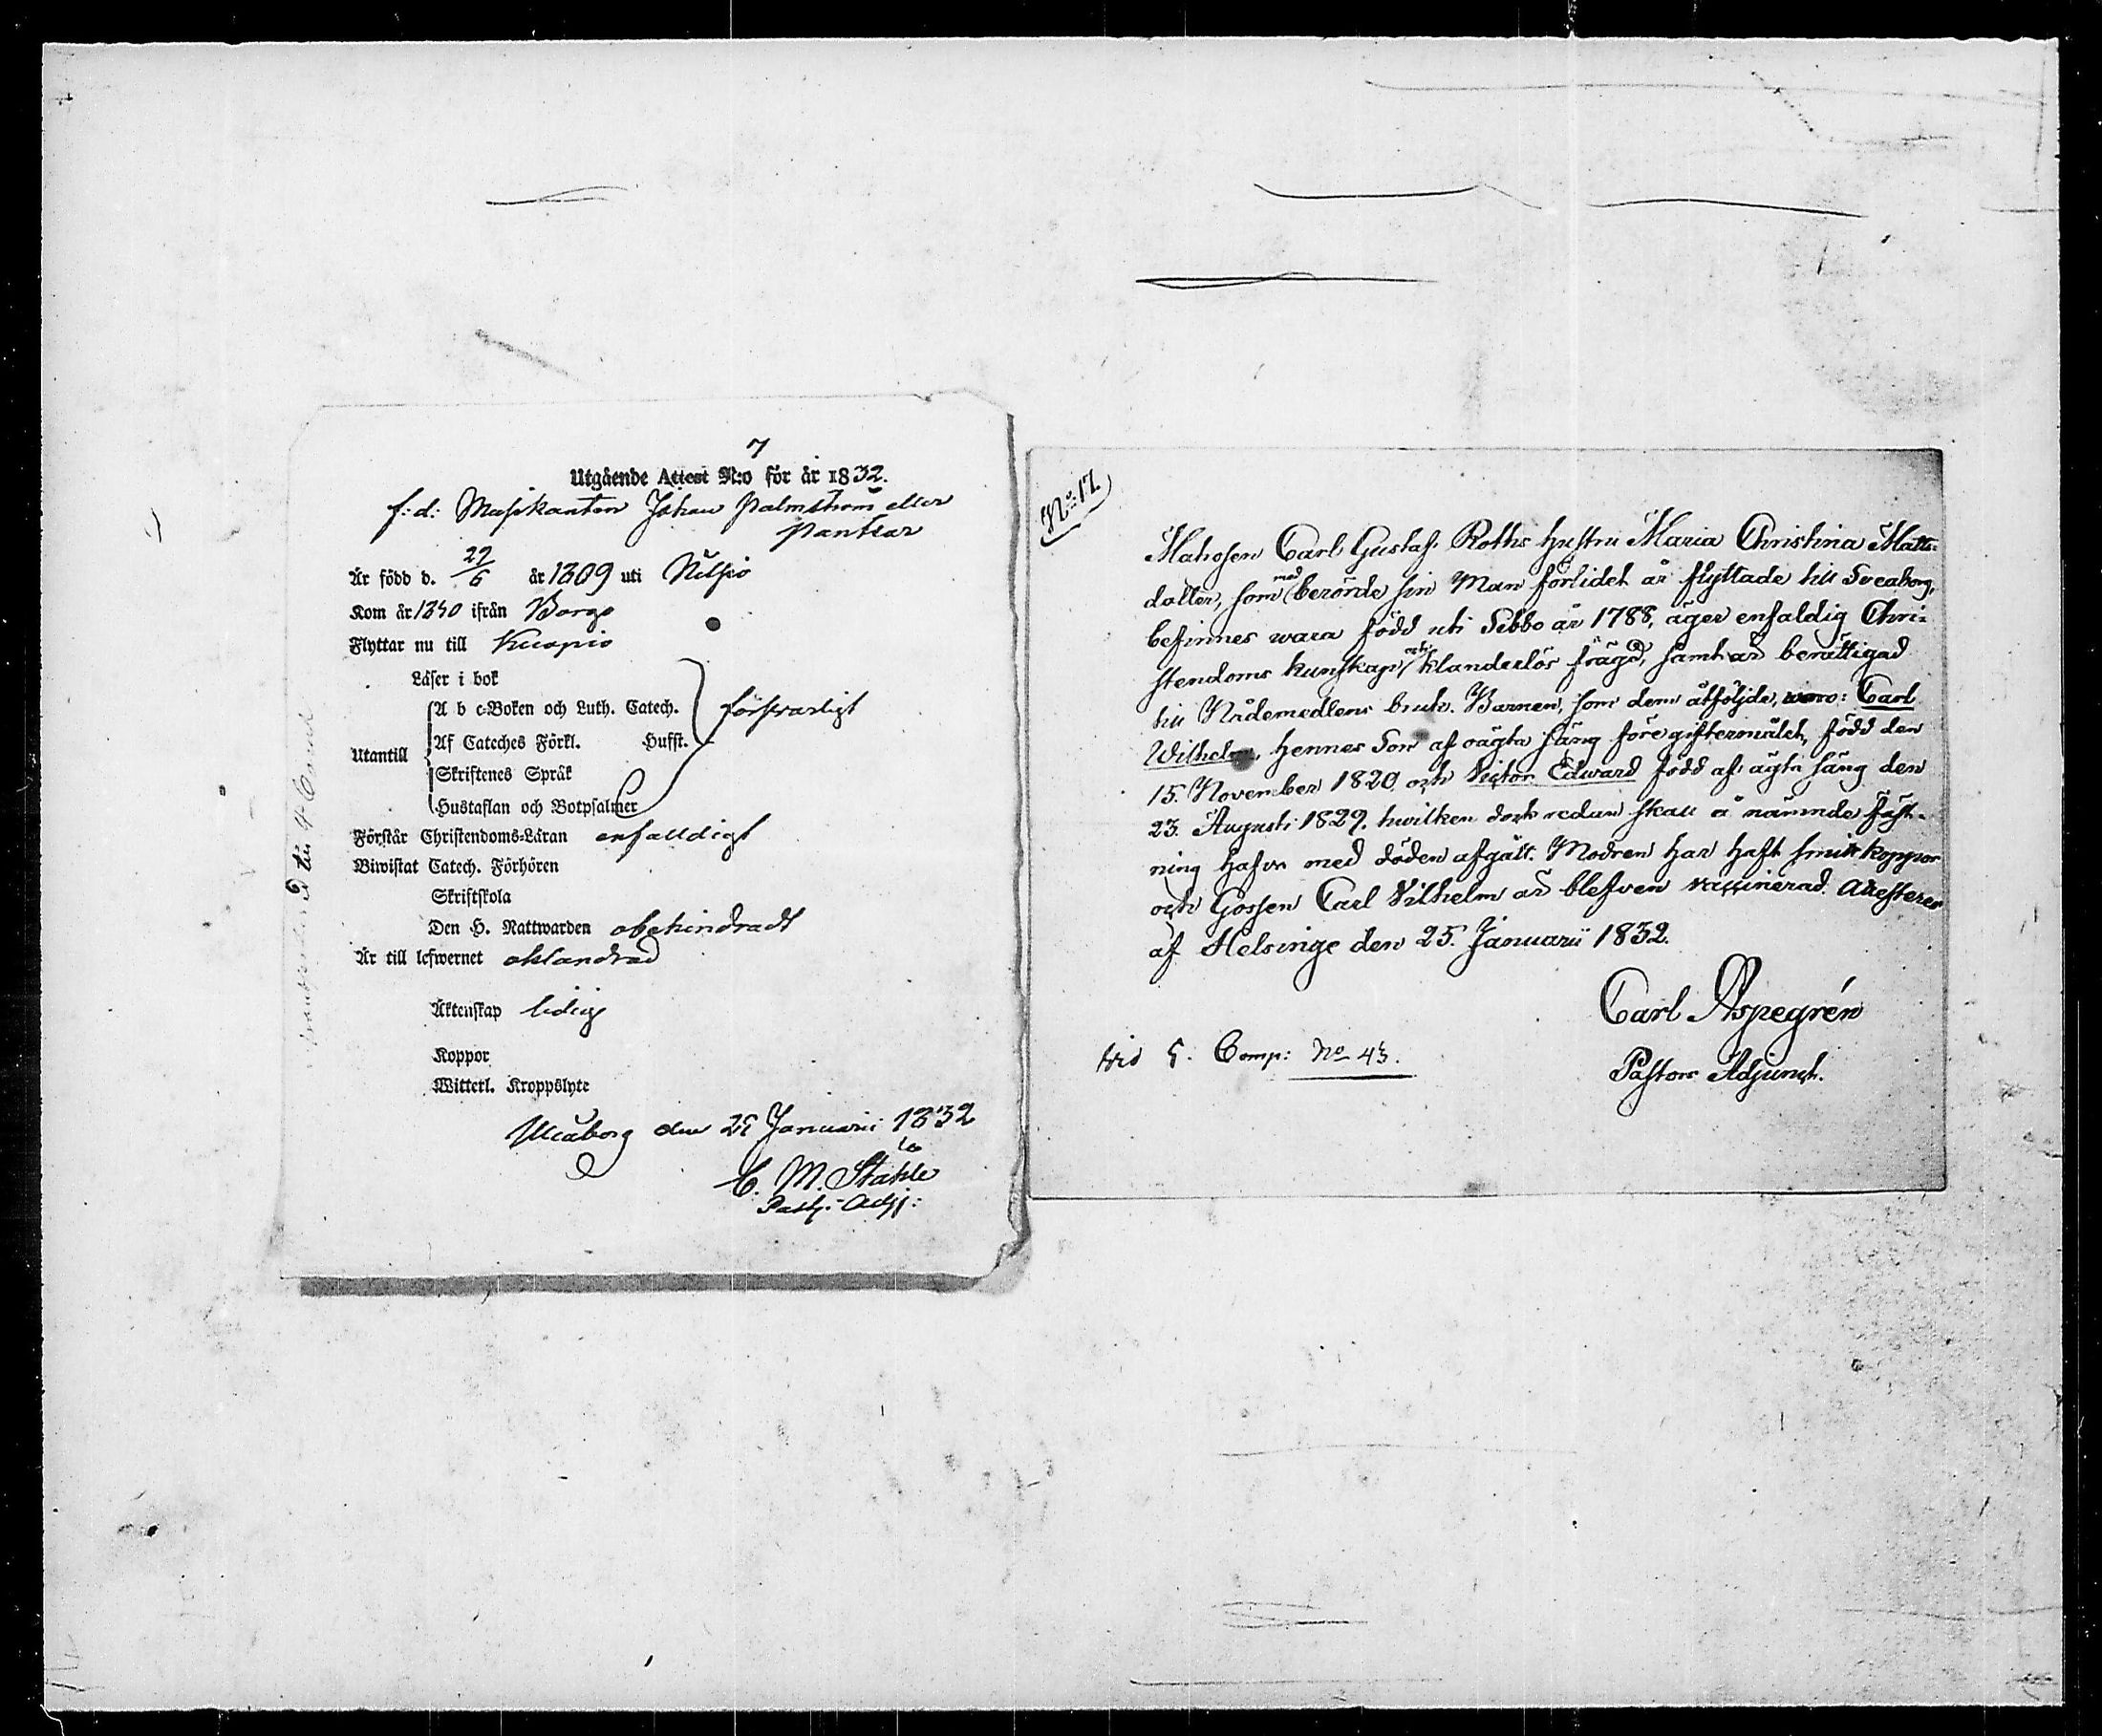 7
Utgående Attest N:o för år 1832.
f: d: Musikanten Johan Palmström eller
Pantsar
Är född d. 27/6 år 1809 uti Nilsiö
Kom år 1830 ifrån Borgo
Flyttar nu till Kuopio
Läser i bok
A b c-Boken och Luth. Catech. försvarligt
Utantill Af Cateches Förkl. Husst.
Skriftenes Språk
Hustaflan och Botpsalmer
Förstår Christendoms-Läran enfalldigt
Biwistat Catech. Förhören
Skriftskola
Den H. Nattwarden obehindradt
Är till lefwernet oklandrad
Äktenskap ledig
Koppor
Witterl. Kroppslyte
Uleåborg den 21 Januarii 1832
C. M. Ståhle
Past: Adjj:
No: 17.
Matrosen Carl Gustaf Roths hustru Maria Christina Matts-
dotter, som med berörde sin Man förlidet år flyttade till Sveaborg,
befinnes wara född uti Sibbo år 1788, äger enfaldig Chri-
stendoms kunskap och klanderlös frägd, samt är berättigad
till Nådemedlens bruk. Barnen, som dem åtföljde, woro: Carl
Wilhelm, hennes Son af oägta säng före giftermålet, född den
15. November 1820 och Victor Edward född af ägta säng den
23. Augusti 1829. hwilken dock redan skall å nämnde fäst-
ning hafva med döden afgått. Modren har haft smittkoppor
och Gossen Carl Vilhelm är blefven vaccinerad. Attesteres
af Helsinge den 25. Januarii 1832.
Carl Aspegrén
Pastors Adjunct.
vid 5. Comp: No 43.